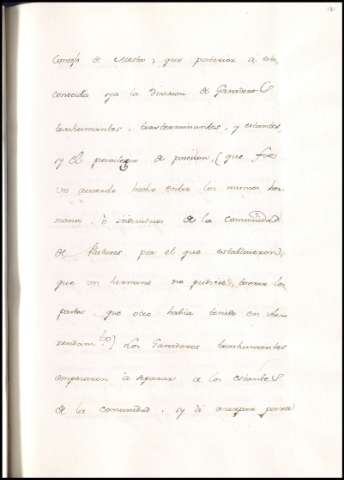 Concejo de Mesta, que posterior a esta
concedia ya la division de Ganaderos
transhumantes, trasterminantes, y estantes,
y el privilegio de posesion, (que fue
un acuerdo hecho entre los mismos her
manos, è individuos de la comunidad
de Pastores por el que establecieron,
que un hermano no pudiese, tomar los
pastos que otro habia tenido en Arre
rendam.to) Los Ganaderos transhumantes
empezaron à separar de los estantes
de la comunidad, y à para